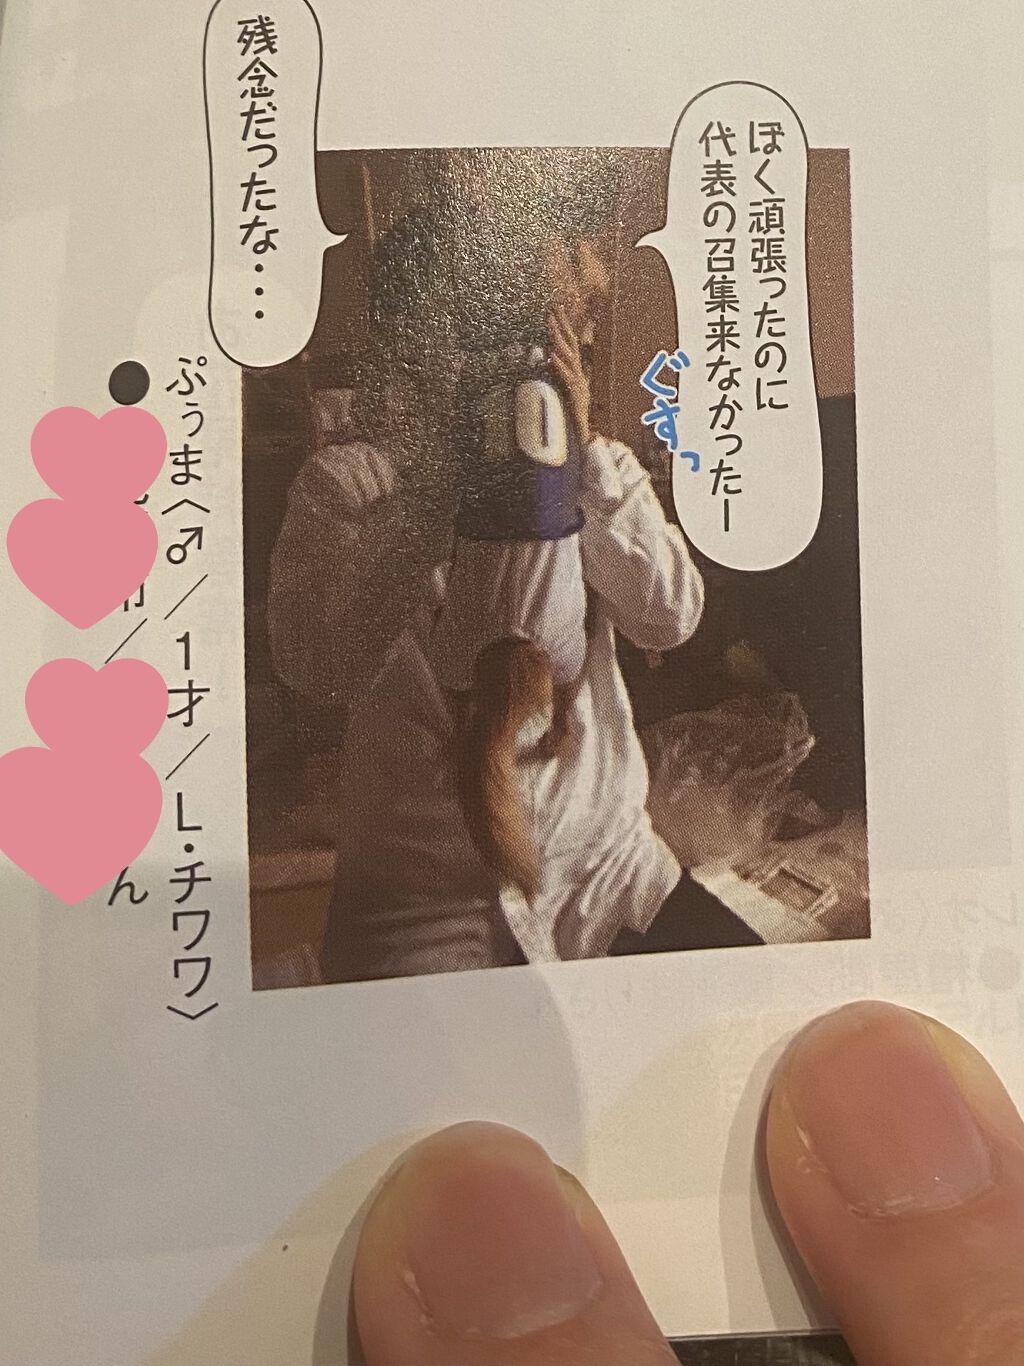 ぼく頑張ったのに
代表の召集来なかったー
ぐすっ
残念だったな・・・
ぷぅま〈♂／1才／L・チワワ〉
●
／
ん